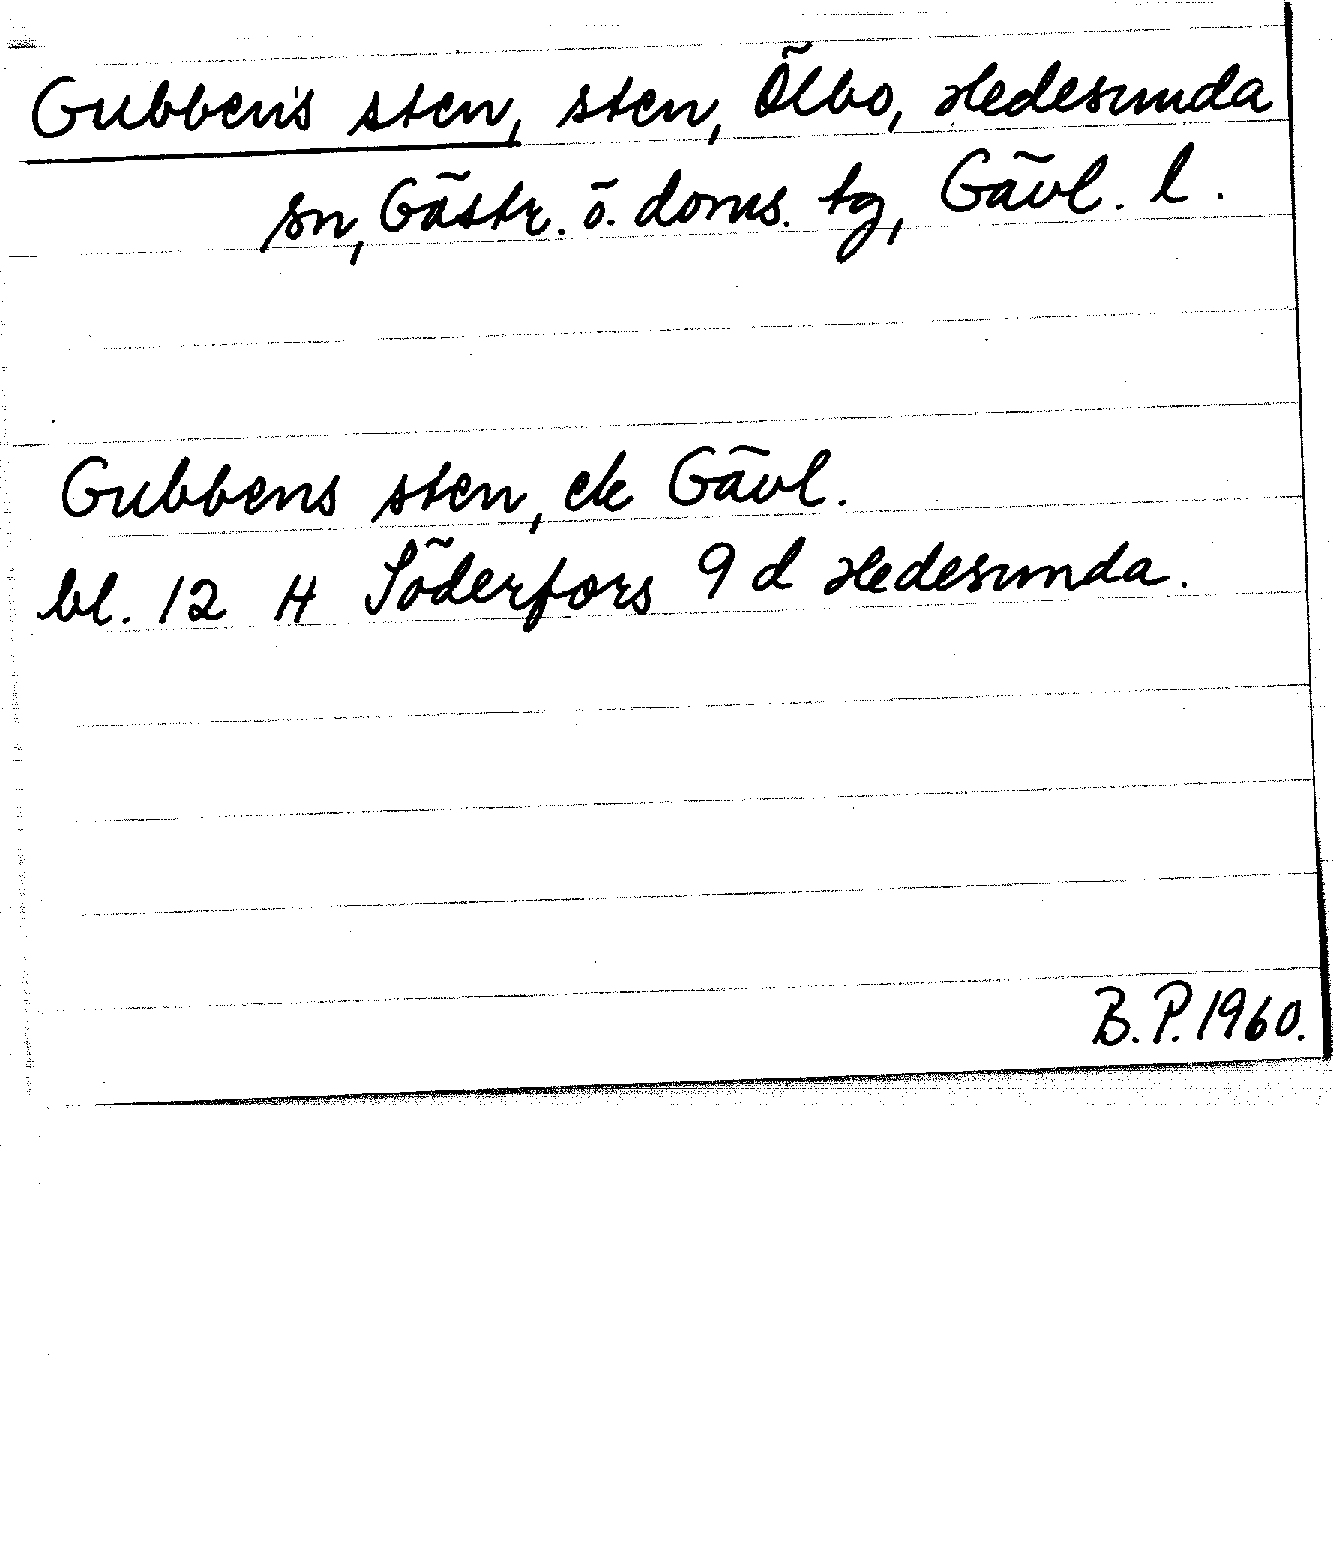 Gubbens sten, sten, Ölbo, Hedesunda
sn, Gästr. ö. doms. tg, Gävl. l.
Gubbens sten, ek Gävl.
bl. 12 H Söderfors 9 d Hedesunda.
B.P. 1960.